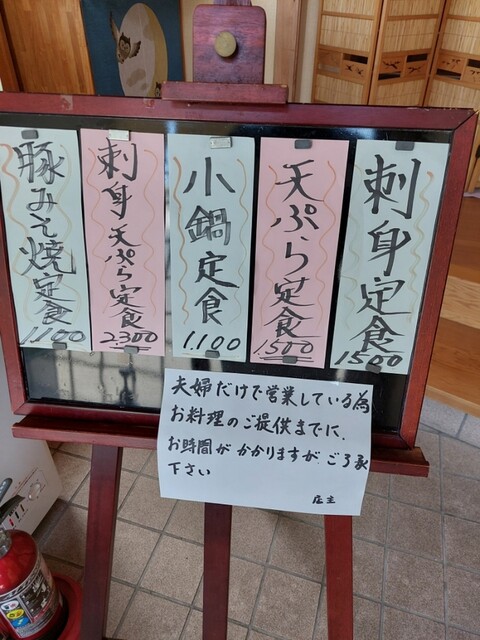 刺身定食
1500
天ぷら定食
1,500
小鍋定食
1.100
刺身天ぷら定食
2.300
豚みそ焼定食
1,100
夫婦だけで営業している為
お料理のご提供までに、
お時間がかかりますが、ご了承
下さい
店主